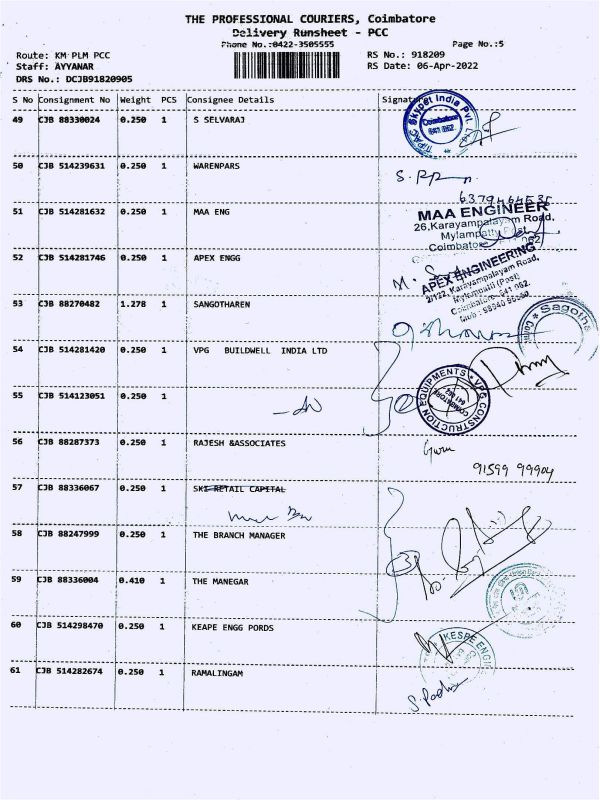 THE PROFESSIONAL COURIERS, Coimbatore
Delivery Runsheet - PCC
Phone No.:0422-3505555
Page No.:5
Route: KM PLM PCC
RS No.: 918209
Staff: AYYANAR
RS Date: 06-Apr-2022
DRS No.: DCJB91820905
S No Consignment No Weight PCS Consignee Details Signature
49 CJB 88330024 0.250 1 S SELVARAJ
Skypet India Pvt. Ltd.
Coimbatore
50 CJB 514239631 0.250 1 WARENPARS
51 CJB 514281632 0.250 1 MAA ENG
MAA ENGINEER
26,Karayampalayam Road,
Mylampatty
Coimbatore
52 CJB 514281746 0.250 1 APEX ENGG
APEX ENGINEERING
2/122, Karayampalayam Road,
Mylampatti (Post)
Coimbatore- 641 062.
53 CJB 88270482 1.278 1 SANGOTHAREN
54 CJB 514281420 0.250 1 VPG BUILDWELL INDIA LTD
VPG CONSTRUCTION EQUIPMENTS
COIMBATORE
641 062
55 CJB 514123051 0.250 1
56 CJB 88287373 0.250 1 RAJESH &ASSOCIATES
Guru
91599 99904
57 CJB 88336067 0.250 1 SKI RETAIL CAPITAL
58 CJB 88247999 0.250 1 THE BRANCH MANAGER
59 CJB 88336004 0.410 1 THE MANEGAR
60 CJB 514298470 0.250 1 KEAPE ENGG PORDS
61 CJB 514282674 0.250 1 RAMALINGAM